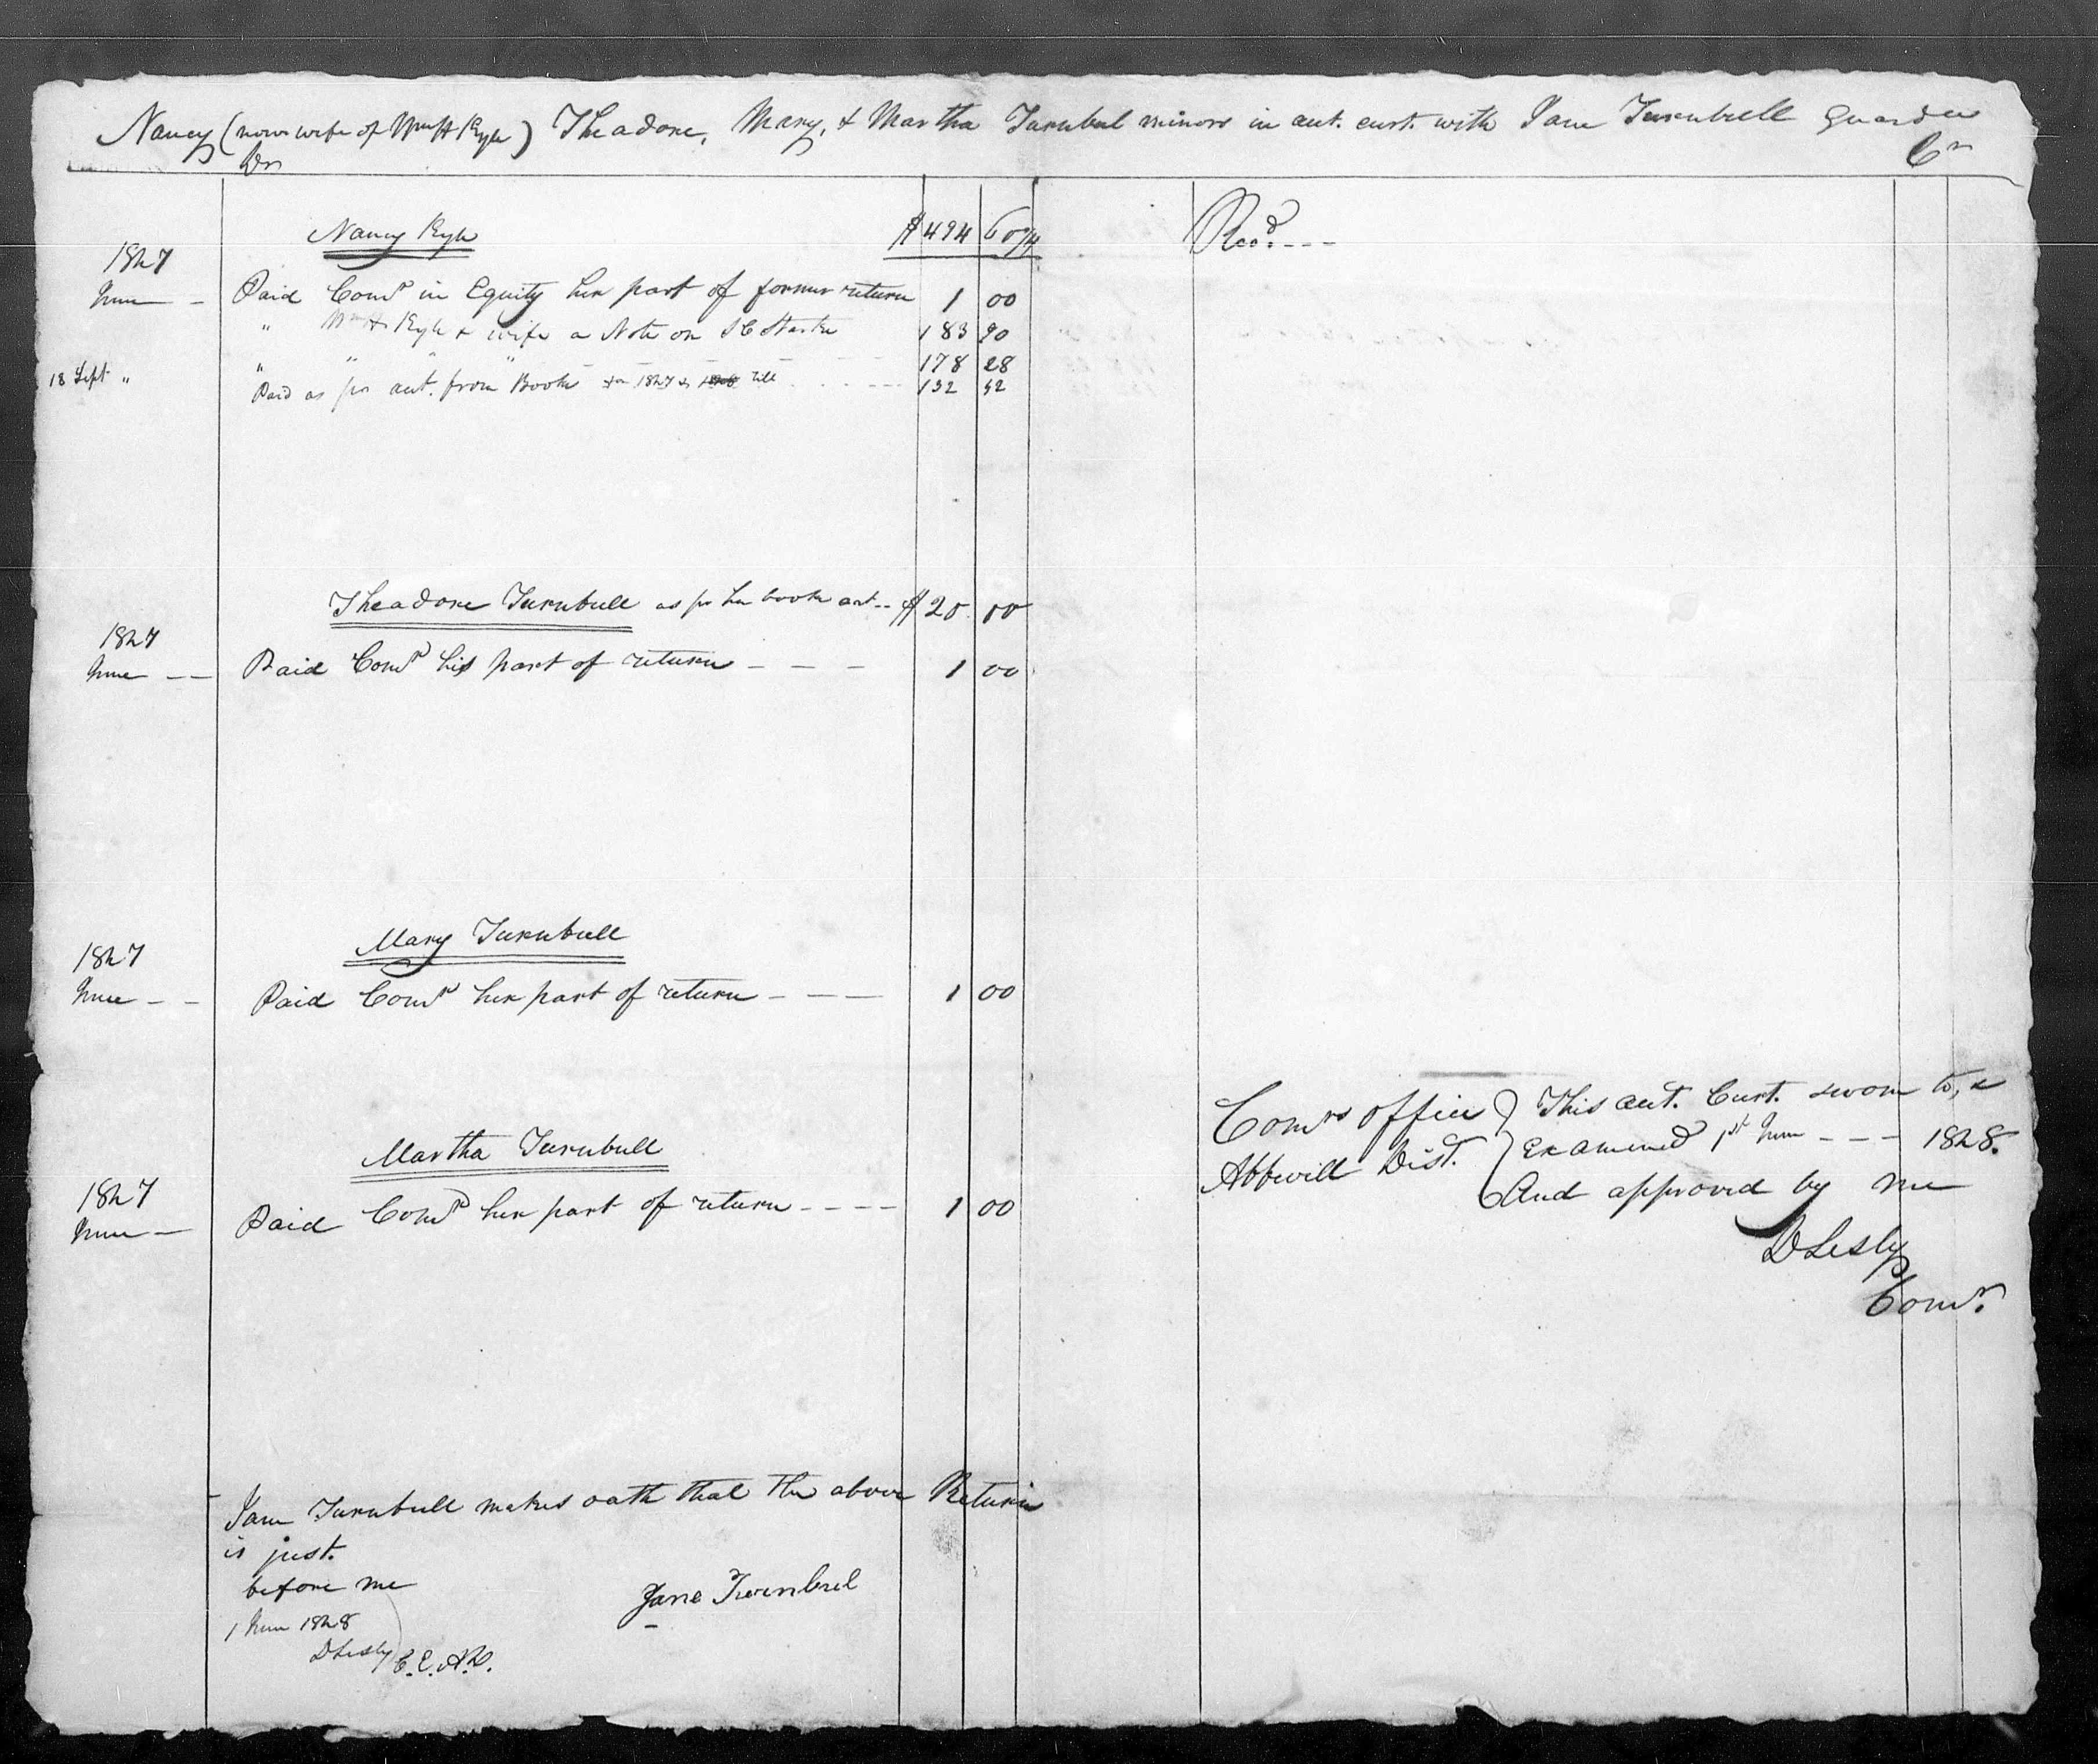 Nancy (now wife of Wm H Kyle) Theadore, Mary, & Martha Turnbul minors in act. curt. with Jane Turnbull Guardn
Dr
Cr
Nancy Kyle $494 60¾
1827
June — Paid Comr in Equity her part of former return 1 00
" Wm H Kyle & wife a Note on 183 90
18 Sept " " " " " 178 28
Paid as pr act. from Book 1827 132 42
Theadore Turnbull as pr her book act -- $20. 00
1827
June — — Paid Comr his part of return — — — 1 00
Mary Turnbull
1827
June — — Paid Comr her part of return — — — 1 00
Martha Turnbull
1827
June — Paid Comr her part of return - - - - 1 00
Jane Turnbull makes oath that the above Return
is just.
before me
1 June 1828
DLesly
C. E. A. D.
Jane Turnbul
Recd. - - -
Comrs office } This act. Curt. sworn to, &
Abbevill Dist. } Examined 1st June - - - 1828.
And approved by me
DLesly
Comr.